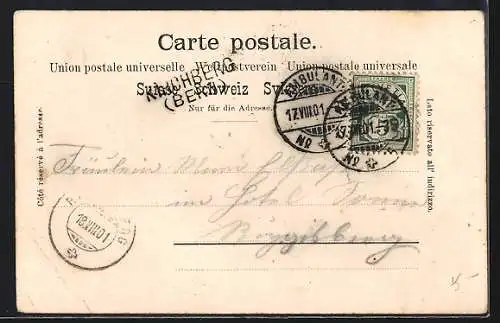 Carte postale.
Union postale universelle. Weltpostverein Unione postale universale
KIRCHBERG
(BERN)
Suisse Schweiz Svizzera
Nur für die Adresse.
AMBULANT
17.VIII.01
No
AMBULANT
17.VIII.01
No
5
Côté réservé à l'adresse.
Lato riservato all' indirizzo.
Fräulein
im Hotel Sonne
18.VIII.01